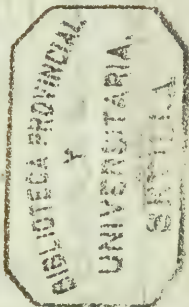 BIBLIOTECA PROVINCIAL
Y
UNIVERSITARIA.
SEVILLA